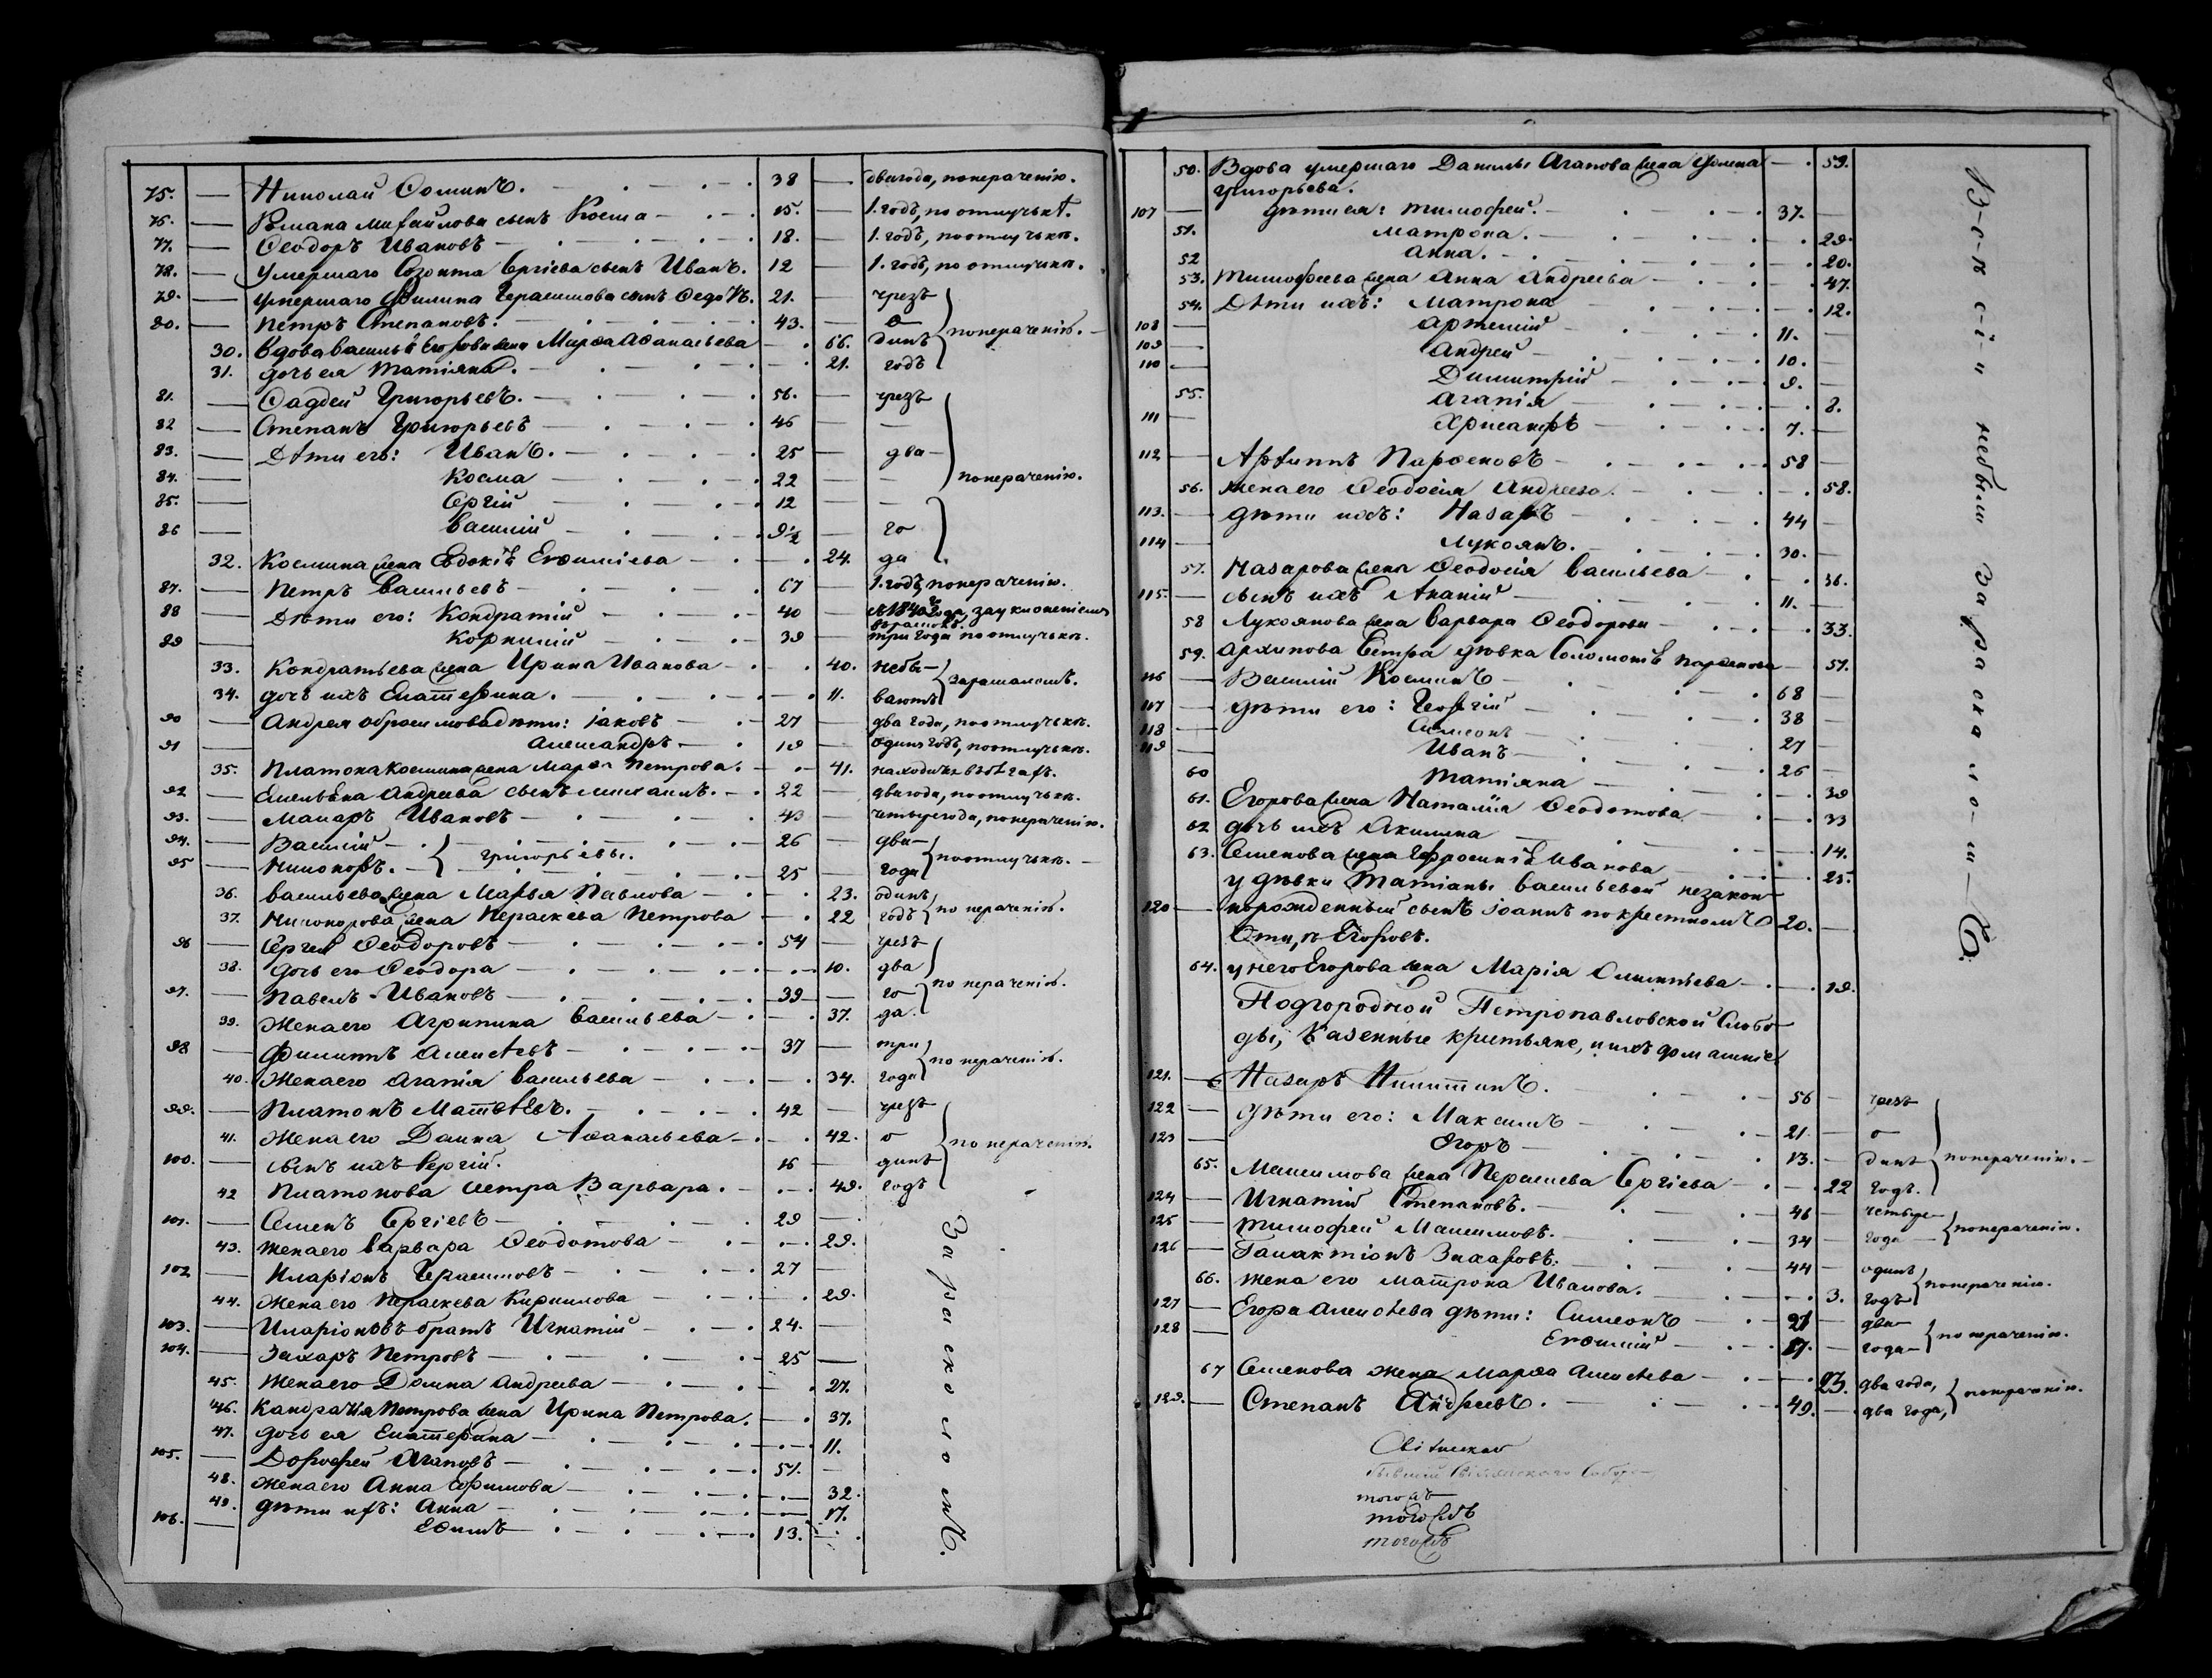 75. — Николай Ѳоминъ. 38 — два года, по нераченію.
76. — Романа Михайлова сынъ Косма 15. — 1. годъ, по отлучькѣ.
77. — Ѳеодоръ Ивановъ 18. — 1. годъ, по отлучькѣ.
78. — Умершаго Созонта Сергіева сынъ Иванъ. 12 — 1. годъ, по отлучькѣ.
79. — умершаго Филипа Герасимова сынъ Ѳедоръ. 21. — чрезъ
80. — Петръ Степановъ. 43. — о по нераченію.
30. Вдова Василья Егорова жена Марѳа Аѳанасьева 66. динъ
31. дочь ея Татіяна. 21. годъ
81. — Ѳаддей Григорьевъ. 56. — чрезъ
82 — Степанъ Григорьевъ 46 —
83. — Дѣти его: Иванъ. 25 — два
84. — Косма 22 — по нераченію.
85. — Сергій 12 —
86 — Василій 9½ — го
32. Космина жена Евдокія Евѳиміева 24. да
87. — Петръ Васильевъ 67 — 1. годъ, по нераченію.
88 — Дѣти его: Кондратій 40 — съ 1840 года, за уклоненіемъ въ расколъ.
89 — Корнилій 39 — три года по отлучькѣ.
33. Кондратьева жена Ирина Иванова 40. небы
34. дочь ихъ Екатерина. 11. ваютъ за расколомъ.
90 — Андрея Абросимова дѣти: Іаковъ 27 — два года, по отлучькѣ.
91 — Александръ 19 — одинъ годъ, по отлучькѣ.
35. Платона Космина жена Марѳа Петрова. 41. находится въ бѣгахъ.
92 — Емельяна Андреева сынъ Михаилъ. 22 — два года, по отлучькѣ.
93. — Макаръ Ивановъ 43 — четыре года, по нераченію.
94. — Василій 26 — два
Григорьевы.
95 — Никоноръ. 25 — года по отлучькѣ.
36. Васильева жена Марья Павлова 23. одинъ
37. Никонорова жена Пераскева Петрова 22 годъ по нераченію.
96 — Сергей Ѳеодоровъ 54 — чрезъ
38. дочь его Ѳеодора 10. два
97. — Павелъ Ивановъ 39 — го по нераченію.
39. Жена его Агрипина Васильева 37. да.
98 — Филиппъ Алексѣевъ 37 — три
40. Жена его Агапія Васильева 34. года по нераченію.
99. — Платонъ Матвѣевъ. 42 — чрезъ
41. Жена его Домна Аѳанасьева 42. о по нераченію.
100. — сынъ ихъ Сергій. 16 — динъ
42 Платонова сестра Варвара. 49. годъ
101. — Семенъ Сергіевъ 29 —
43. жена его Варвара Ѳеодотова 29.
102 — Иларіонъ Герасимовъ 27 —
44. Жена его Пераскева Кирилова 29.
103. — Иларіоновъ братъ Игнатій 24. —
104. — Захаръ Петровъ 25 —
45. Жена его Домна Андреева 27.
46. Кандратія Петрова жена Ирина Петрова. 37.
47. дочь ея Екатерина 11.
105. — Дорофей Агаповъ 51. —
48. жена его Анна Ефимова 32.
49. дѣти ихъ: Анна 17.
106. — Еѳимъ 13.
За расколомъ.
50. Вдова умершаго Данилы Агапова жена
Григорьева. 59.
107 — дѣти ея: Тимофей. 37. —
51. Матрона. 29.
52 Анна. 20.
53. Тимофеева жена Анна Андреева 47.
54. Дѣти ихъ: Матрона 12.
108 — Артемій 11. —
109 — Андрей 10. —
110 — Димитрій 9. —
55. Агапія 8.
111 — Хрисанфъ 7. —
112 — Архиппъ Парѳеновъ 58 —
56. жена его Ѳеодосія Андреева. 58.
113. — дѣти ихъ: Назаръ 44 —
114 — Лукоянъ. 30. —
57. Назарова жена Ѳеодосія Васильева 36.
115. — сынъ ихъ Ананій 11. —
58 Лукоянова жена Варвара Ѳеодорова 33.
59. Архипова сестра дѣвка Соломонія Парѳенова 51.
116 — Василій Косминъ 68 —
117 — дѣти его: Георгій 38 —
118 — Симеонъ 27 —
119 — Иванъ 26 —
60 Татіяна 39
61. Егорова жена Наталія Ѳеодотова 33
62 дочь ихъ Акилина 14.
63. Семенова жена Ефросинія Иванова 25.
у дѣвки Татіаны Васильевой незакон
120 — норожденный сынъ Іоаннъ по крестному 20. —
Отцу, Егоровъ.
64. у него Егорова жена Марія 19.
Подгородной Петропавловской Слобо
ды, Казенные крестьяне, и ихъ домашніе
121. — Назаръ Никитинъ. 56 — чрезъ
122 — дѣти его: Максимъ 21. — о
123 — Егоръ 13. — динъ по нераченію.
65. Максимова жена Пераскева Сергіева 22 годъ.
124 — Игнатій Степановъ. 46 — четыре
125 — Тимофей Максимовъ. 34 — года по нераченію.
126 — Галактіонъ Захаровъ. 44 — одинъ
66. жена его Матрона Иванова. 3. годъ по нераченію.
127 — Егора Алексѣева дѣти: Симеонъ 21 — два
128 — Евѳимій 17. — года по нераченію.
67 Семенова жена Марѳа Алексѣева 23. два года,
129. — Степанъ Андреевъ. 49. — два года, по нераченію.
В-с-ѣ с-і-и небыли За расколо-м-ъ.
того жъ
того жъ
того жъ